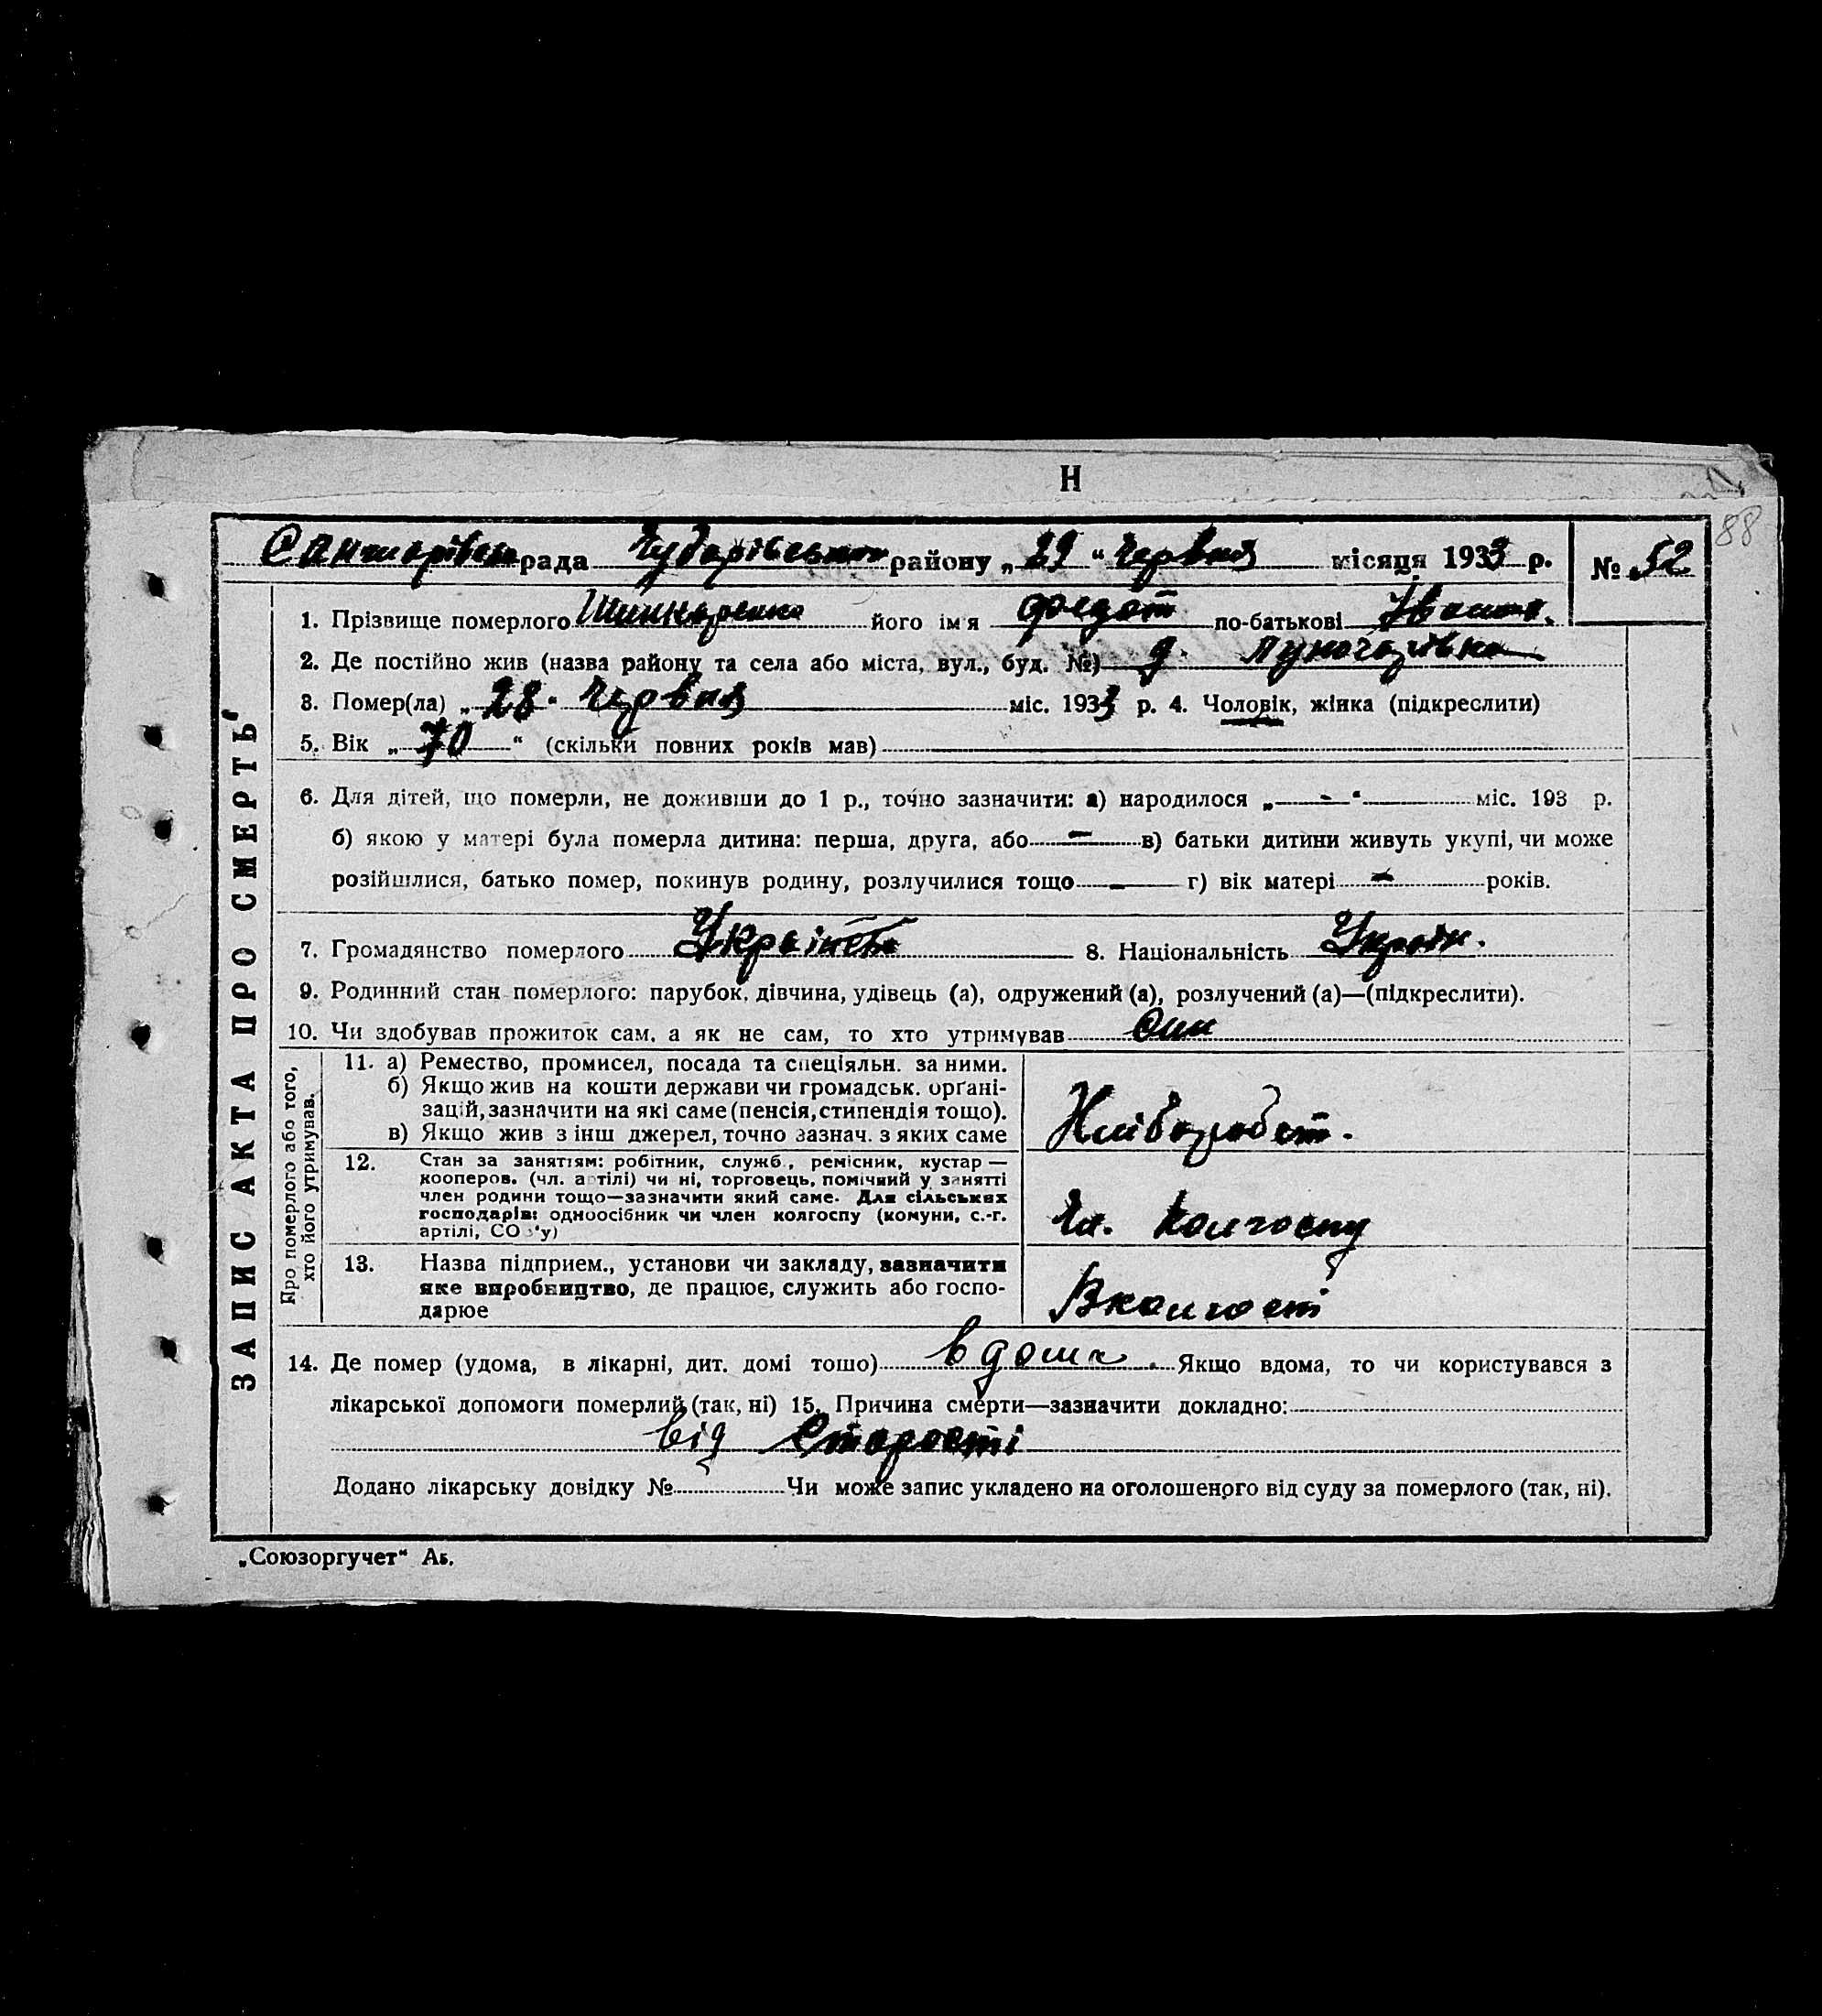 Н
88
Санжарівська рада Чубарівського району „29“ Червня місяця 1933 р. № 52
ЗАПИС АКТА ПРО СМЕРТЬ
1. Прізвище померлого Шинкаренко його ім'я Федот по-батькові Іванов.
2. Де постійно жив (назва району та села або міста, вул., буд. №) д. Луначарівка
3. Помер(ла) „28“ Червня міс. 1933 р. 4. Чоловік, жінка (підкреслити)
5. Вік „70“ (скільки повних років мав)
6. Для дітей, що померли, не доживши до 1 р., точно зазначити: а) народилося „—“ міс. 193 р.
б) якою у матері була померла дитина: перша, друга, або — в) батьки дитини живуть укупі, чи може
розійшлися, батько помер, покинув родину, розлучилися тощо — г) вік матері — років.
7. Громадянство померлого 8. Національність Україн.
9. Родинний стан померлого: парубок, дівчина, удівець (а), одружений (а), розлучений (а)—(підкреслити).
10. Чи здобував прожиток сам, а як не сам, то хто утримував
Про померлого або того,
хто його утримував.
11. а) Ремество, промисел, посада та спеціяльн. за ними.
б) Якщо жив на кошти держави чи громадськ. орґані-
зацій, зазначити на які саме (пенсія, стипендія тощо).
в) Якщо жив з інш джерел, точно зазнач. з яких саме
Хлібороб
12. Стан за заняттям: робітник, служб., ремісник, кустар —
кооперов. (чл. артілі) чи ні, торговець, помічний у занятті
член родини тощо—зазначити який саме. Для сільських
господарів: одноосібник чи член колгоспу (комуни, с.-г.
артілі, СОЗ'у)
Чл. колгоспу
13. Назва підприєм., установи чи закладу, зазначити
яке виробництво, де працює, служить або госпо-
дарює
В колгоспі
14. Де помер (удома, в лікарні, дит. домі тощо) в дома. Якщо вдома, то чи користувався з
лікарської допомоги померлий (так, ні) 15. Причина смерти—зазначити докладно:
від старості
Додано лікарську довідку № Чи може запис укладено на оголошеного від суду за померлого (так, ні).
„Союзоргучет“ Аб.